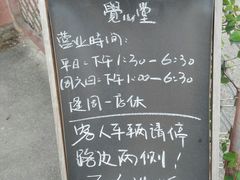 覺心堂
营业时间：
平日=下午1:30—6:30
周六日=下午1:00—6:30
逢周一店休
客人车辆请停
路边两侧！